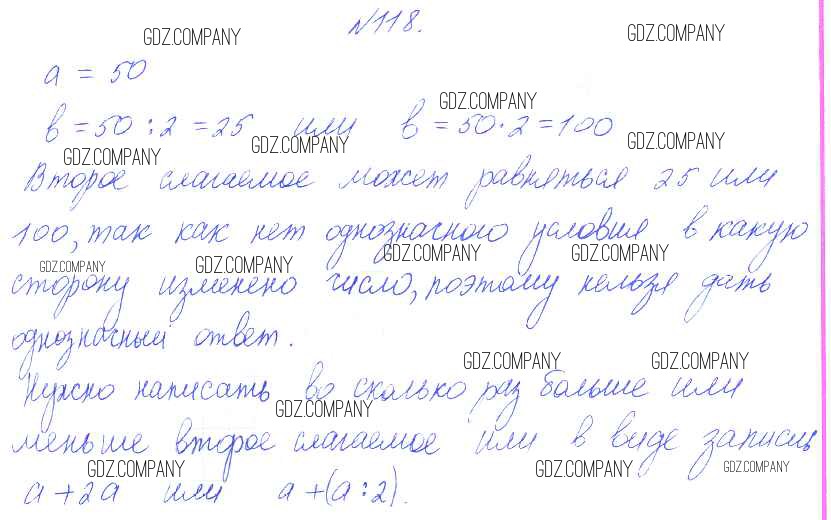 №118.
GDZ.COMPANY GDZ.COMPANY
a = 50
GDZ.COMPANY
в = 50 : 2 = 25 или в = 50 · 2 = 100
GDZ.COMPANY GDZ.COMPANY GDZ.COMPANY
Второе слагаемое может равняться 25 или
100, так как нет однозначного условия в какую
GDZ.COMPANY GDZ.COMPANY GDZ.COMPANY GDZ.COMPANY
сторону изменено число, поэтому нельзя дать
однозначный ответ.
GDZ.COMPANY GDZ.COMPANY
Нужно написать во сколько раз больше или
GDZ.COMPANY
меньше второе слагаемое или в виде записи
GDZ.COMPANY GDZ.COMPANY GDZ.COMPANY
a + 2a или a + (a : 2).